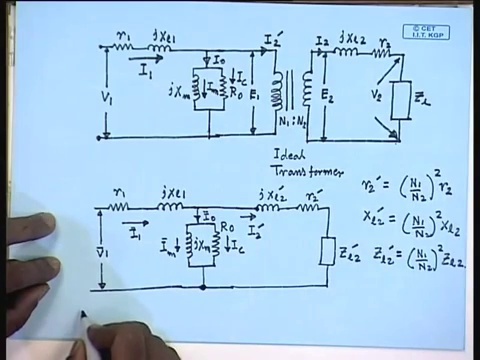 © CET
I.I.T. KGP
r1 jxl1 I2' I2 jxl2 r2
I1 I0
V1 jxm Im Ic R0 E1 E2 V2 Z̄l
N1:N2
Ideal
Transformer
r1 jxl1 jxl2' r2'
Ī1 Ī0 I2'
V̄1 Īm jxm R0 Ic Z̄l2'
r2' = (N1/N2)² r2
xl2' = (N1/N2)² xl2
Z̄l2' = (N1/N2)² Z̄l2.